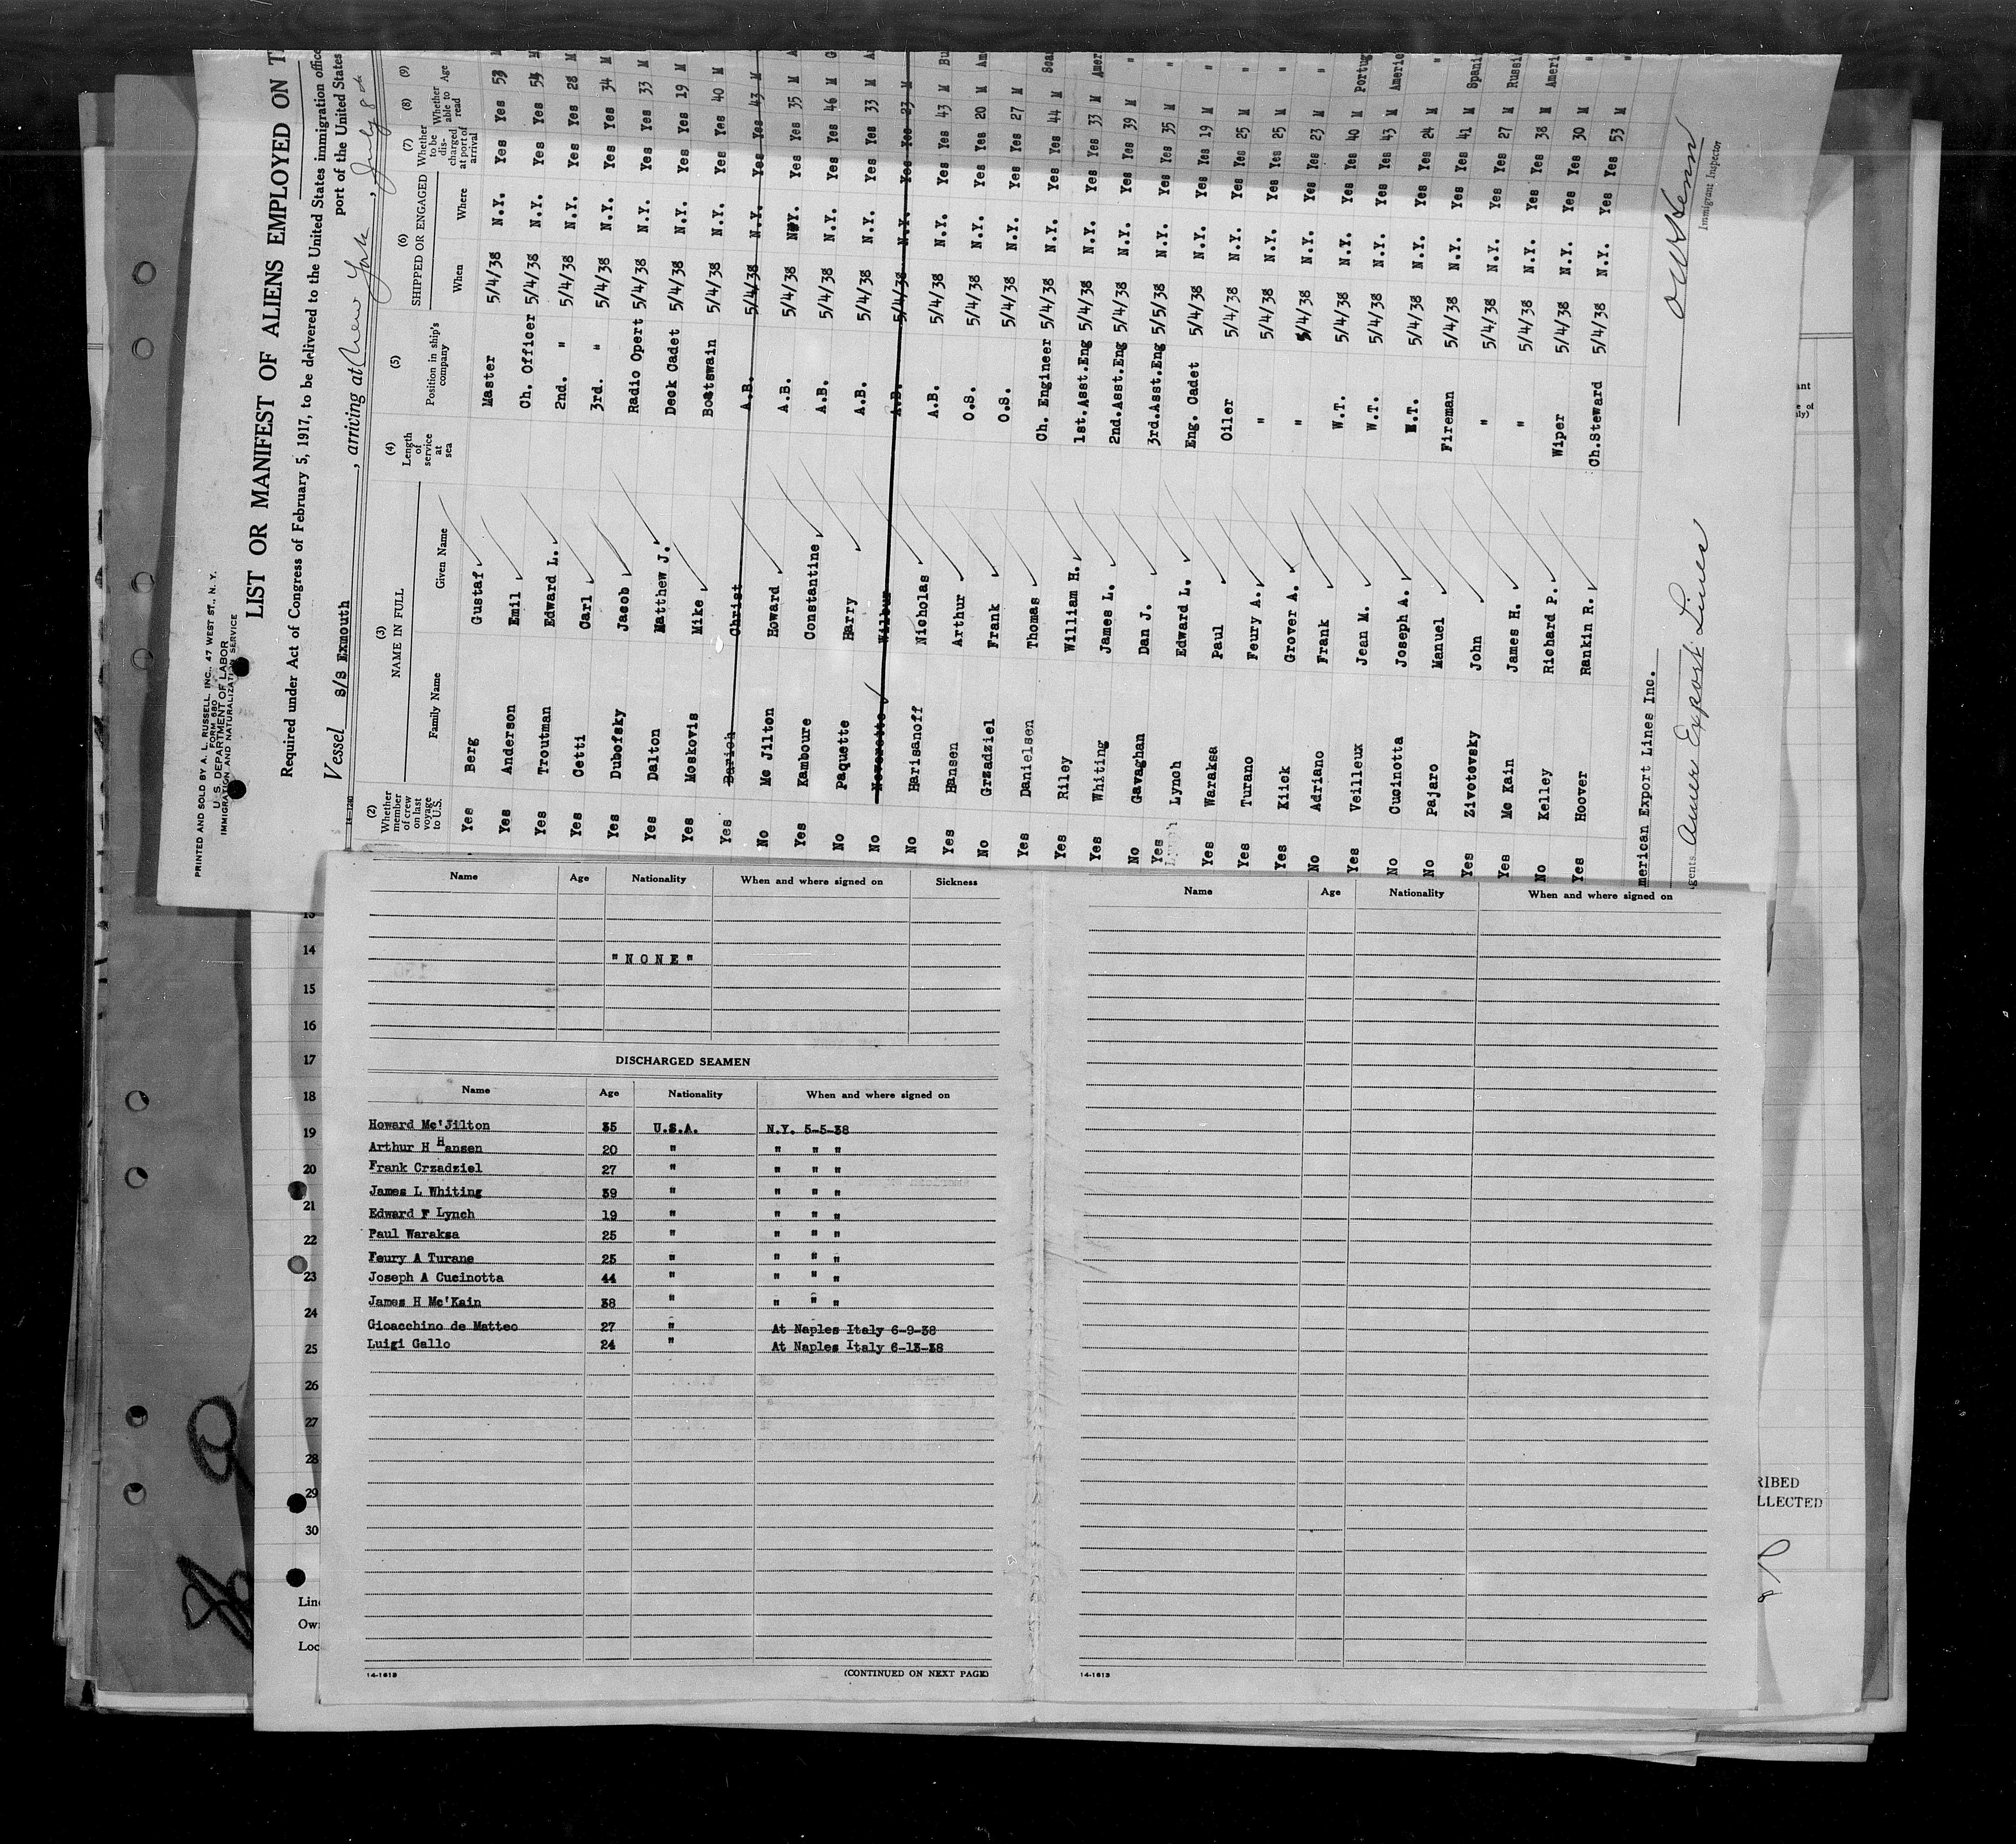 PRINTED AND SOLD BY A. L. RUSSELL, INC., 47 WEST ST., N. Y.
FORM 680
U. S. DEPARTMENT OF LABOR
IMMIGRATION AND NATURALIZATION SERVICE
LIST OR MANIFEST OF ALIENS EMPLOYED ON T
Required under Act of Congress of February 5, 1917, to be delivered to the United States immigration office
port of the United States
Vessel S/S Exmouth, arriving at New York, July 8
14-1240
(2) Whether member of crew on last voyage to U.S.
(3) NAME IN FULL Family Name Given Name
(4) Length of service at sea
(5) Position in ship's company
(6) SHIPPED OR ENGAGED When Where
(7) Whether to be discharged at port of arrival
(8) Whether able to read
(9) Age
Yes Berg Gustaf Master 5/4/38 N.Y. Yes Yes 53 M
Yes Anderson Emil Ch. Officer 5/4/38 N.Y. Yes Yes 54 M
Yes Troutman Edward L. 2nd. " 5/4/38 N.Y. Yes Yes 28 M
Yes Cetti Carl 3rd. " 5/4/38 N.Y. Yes Yes 34 M
Yes Dubofsky Jacob Radio Opert 5/4/38 N.Y. Yes Yes 33 M
Yes Dalton Matthew J. Deck Cadet 5/4/38 N.Y. Yes Yes 19 M
Yes Moskovis Mike Boatswain 5/4/38 N.Y. Yes Yes 40 M
Yes Darich Christ A.B. 5/4/38 N.Y. Yes Yes 43 M
No Mc Jilton Howard A.B. 5/4/38 N.Y. Yes Yes 35 M A
Yes Kamboure Constantine A.B. 5/4/38 N.Y. Yes Yes 46 M G
No Paquette Harry A.B. 5/4/38 N.Y. Yes Yes 33 M A
No Neverette Wilbur A.B. 5/4/38 N.Y. Yes Yes 23 M
No Harisanoff Nicholas A.B. 5/4/38 N.Y. Yes Yes 43 M Bu
Yes Hansen Arthur O.S. 5/4/38 N.Y. Yes Yes 20 M Am
No Grzadziel Frank O.S. 5/4/38 N.Y. Yes Yes 27 M
Yes Danielsen Thomas Ch. Engineer 5/4/38 N.Y. Yes Yes 44 M Sca
Yes Riley William H. 1st.Asst.Eng 5/4/38 N.Y. Yes Yes 33 M Amer
Yes Whiting James L. 2nd.Asst.Eng 5/4/38 N.Y. Yes Yes 39 M "
No Gavaghan Dan J. 3rd.Asst.Eng 5/5/38 N.Y. Yes Yes 35 M "
Yes Lynch Edward L. Eng. Cadet 5/4/38 N.Y. Yes Yes 19 M "
Yes Waraksa Paul Oiler 5/4/38 N.Y. Yes Yes 25 M "
Yes Turano Feury A. " 5/4/38 N.Y. Yes Yes 25 M "
Yes Kiick Grover A. " 5/4/38 N.Y. Yes Yes 23 M "
No Adriano Frank W.T. 5/4/38 N.Y. Yes Yes 40 M Portug
Yes Veilleux Jean M. W.T. 5/4/38 N.Y. Yes Yes 43 M Americ
No Cucinotta Joseph A. W.T. 5/4/38 N.Y. Yes Yes 24 M "
No Pajaro Manuel Fireman 5/4/38 N.Y. Yes Yes 41 M Spani
Yes Zivotovsky John " 5/4/38 N.Y. Yes Yes 27 M Russi
Yes Mc Kain James H. " 5/4/38 N.Y. Yes Yes 38 M Ameri
No Kelley Richard P. Wiper 5/4/38 N.Y. Yes Yes 30 M "
Yes Hoover Rankin R. Ch.Steward 5/4/38 N.Y. Yes Yes 53 M "
merican Export Lines Inc.
gents Amer Export Lines
Immigrant Inspector
Name Age Nationality When and where signed on Sickness
"NONE"
DISCHARGED SEAMEN
Name Age Nationality When and where signed on
Howard Mc'Jilton 35 U.S.A. N.Y. 5-5-38
Arthur H Hansen 20 " " " "
Frank Crzadziel 27 " " " "
James L Whiting 39 " " " "
Edward F Lynch 19 " " " "
Paul Waraksa 25 " " " "
Feury A Turane 25 " " " "
Joseph A Cucinotta 44 " " " "
James H Mc'Kain 38 " " " "
Gioacchino de Matteo 27 " At Naples Italy 6-9-38
Luigi Gallo 24 " At Naples Italy 6-13-38
14-1613 (CONTINUED ON NEXT PAGE)
Name Age Nationality When and where signed on
14-1613
13
14
15
16
17
18
19
20
21
22
23
24
25
26
27
28
29
30
Line
Own
Loc
RIBED
LLECTED